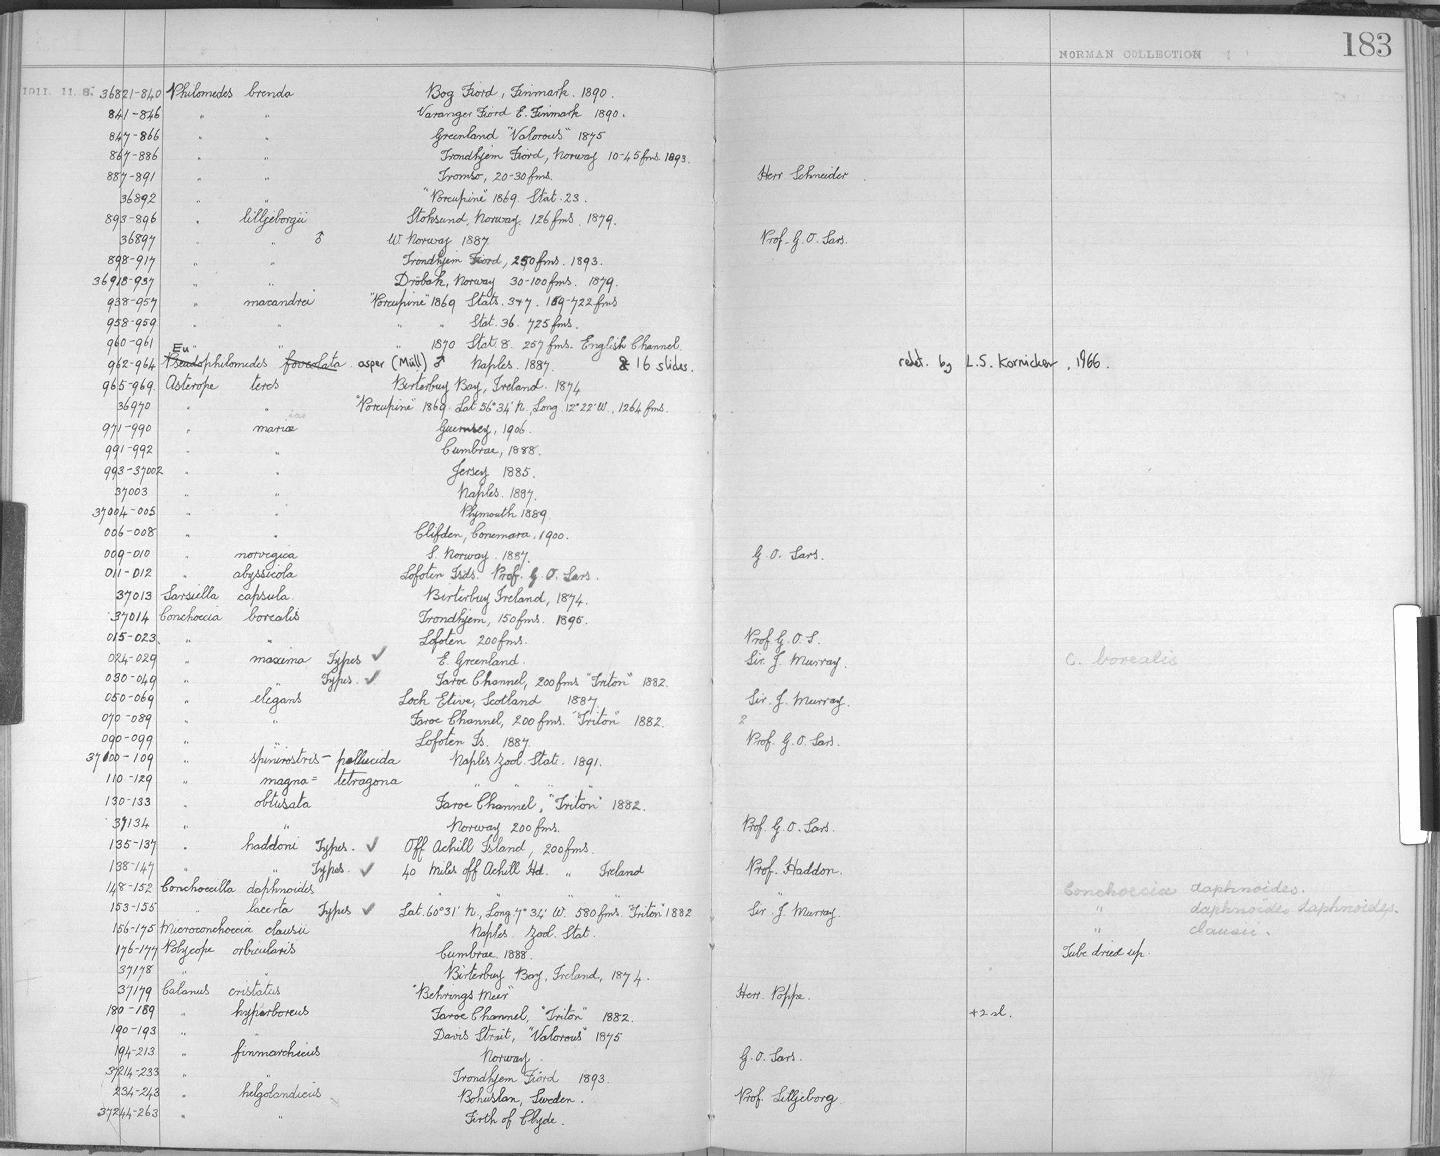 NORMAN COLLECTION 183
1911. 11. 8. 36821-840 Philomedes brenda Bog Fiord, Finmark. 1890.
841-846 " " Varanger Fiord E. Finmark 1890.
847-866 " " Greenland "Valorous" 1875
867-886 " " Trondhjem Fiord, Norway 10-45 fms. 1893.
887-891 " " Tromso, 20-30 fms. Herr Schneider
36892 " " "Porcupine" 1869. Stat. 23.
893-896 " lilljeborgii Stoksund, Norway. 126 fms. 1879.
36897 " " ♂ W Norway 1887 Prof. G. O. Sars.
898-917 " " Trondhjem Fiord, 250 fms. 1893.
36918-937 " " Dröbak, Norway 30-100 fms. 1879.
938-957 " macandrei "Porcupine" 1869 Stats. 3+7. 159-722 fms
958-959 " " " " Stat. 36. 725 fms.
960-961 " " 1870 Stat. 8. 257 fms. English Channel.
962-964 Eu Pseudophilomedes foveolata asper (Müll) ♂ Naples. 1887. & 16 slides. redet. by L.S. Kornicker, 1966.
965-969 Asterope teres Birterbuy Bay, Ireland. 1874
36970 " " "Porcupine" 1869. Lat 56° 34' N., Long. 12° 22' W., 1264 fms.
971-990 " mariæ Guernsey, 1906.
991-992 " " Cumbrae, 1888.
993-37002 " " Jersey 1885.
37003 " " Naples. 1887.
37004-005 " " Plymouth 1889
006-008 " " Clifden, Conemara, 1900.
009-010 " norvegica S. Norway. 1887. G. O. Sars.
011-012 " abyssicola Lofoten Isds. Prof. G. O. Sars.
37013 Sarsiella capsula. Birterbuy Ireland, 1874.
37014 Conchoecia borealis Trondhjem, 150 fms. 1895.
015-023 " " Lofoten 200 fms. Prof G. O. S.
024-029 " maxima Types ✓ E. Greenland. Sir. J. Murray. C. borealis
030-049 " " Types. ✓ Faroe Channel, 200 fms "Triton" 1882.
050-069 " elegans Loch Etive, Scotland 1887. Sir. J. Murray.
070-089 " " Faroe Channel, 200 fms. "Triton" 1882.
090-099 " " Lofoten Is. 1887. Prof. G. O. Sars.
37100-109 " spinirostris - pellucida Naples Zool. Stat. 1891.
110-129 " magna = tetragona " "
130-133 " obtusata Faroe Channel, "Triton" 1882.
37134 " " Norway 200 fms. Prof. G. O. Sars.
135-137 " haddoni Types. ✓ Off Achill Island, 200 fms.
138-147 " " Types. ✓ 40 Miles off Achill Hd. " Ireland Prof. Haddon.
148-152 Conchoecilla daphnoides " " " " " Conchoecia daphnoides.
153-155 " lacerta Types ✓ Lat. 60° 31' N., Long 7° 34' W. 580 fms. "Triton" 1882 Sir J. Murray. " daphnoides daphnoides.
156-175 Microconchoecia clausii Naples. Zool. Stat. " clausii.
176-177 Polycope orbicularis Cumbrae. 1888. Tube dried up.
37178 " " Birterbuy Bay, Ireland, 1874.
37179 Calanus cristatus "Behrings Meer" Herr. Poppe.
180-189 " hyperboreus Faroe Channel, "Triton" 1882. +2 sl.
190-193 " " Davis Strait, "Valorous" 1875
194-213 " finmarchicus Norway. G. O. Sars.
37214-233 " " Trondhjem Fiord 1893.
234-243 " helgolandicus Bohuslan, Sweden. Prof. Lilljeborg.
37244-263 " " Firth of Clyde.